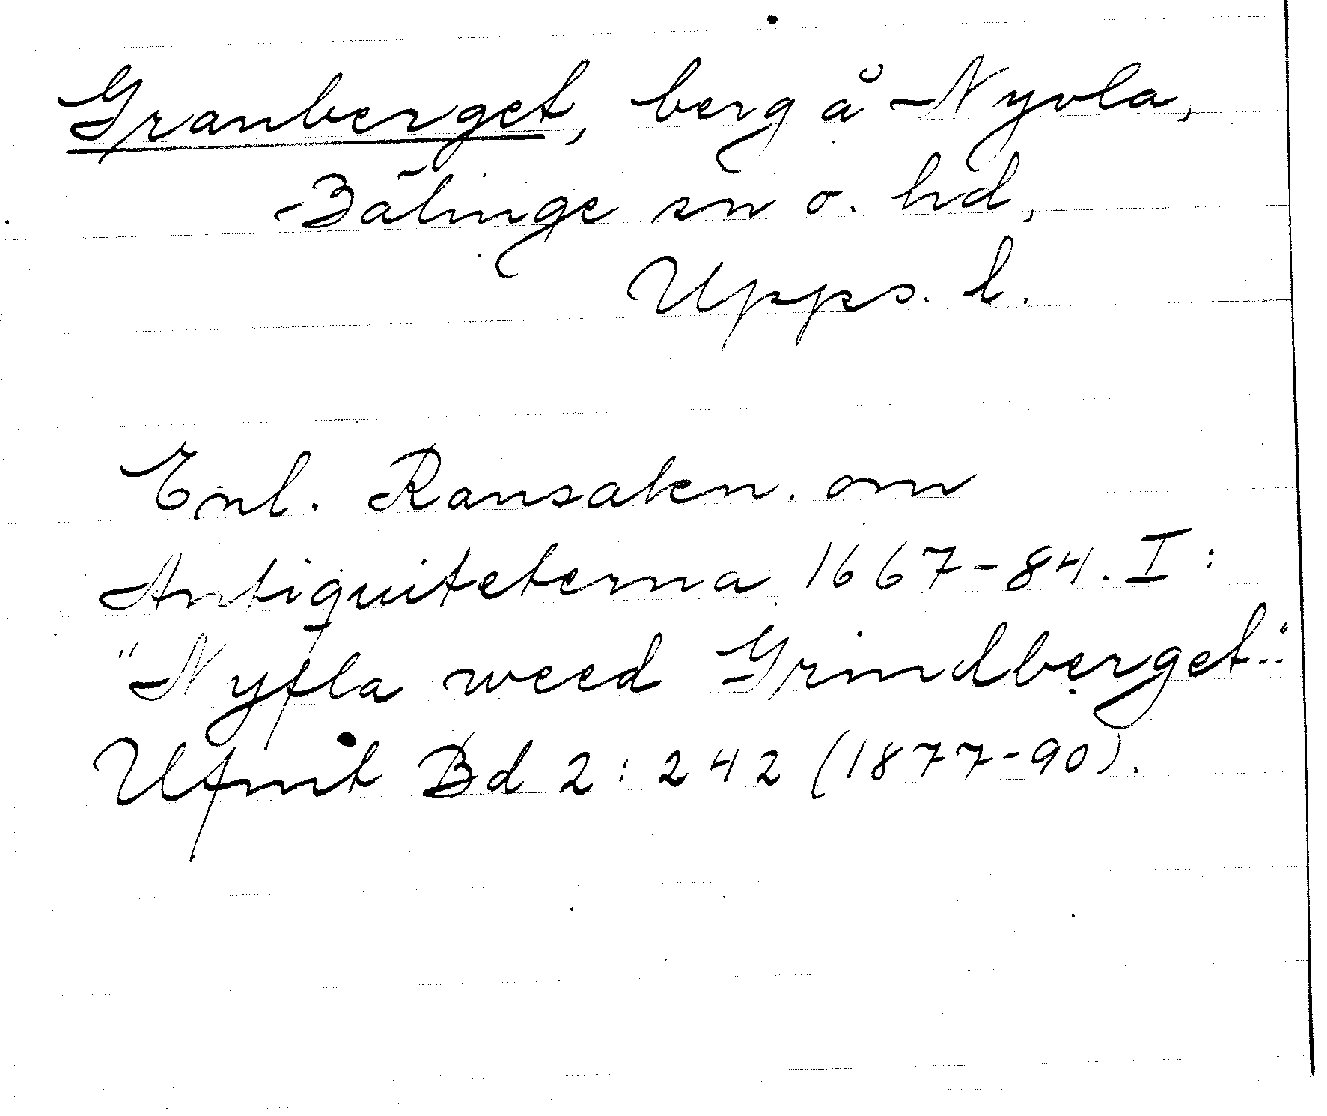 Granberget, berg å Nyvla,
Bälinge sn o. hd,
Upps. l.
Enl. Ransakn. om
Antiquiteterna 1667-84. I:
"Nyfla weed Grindberget."
Ufmt Bd 2:242 (1877-90).